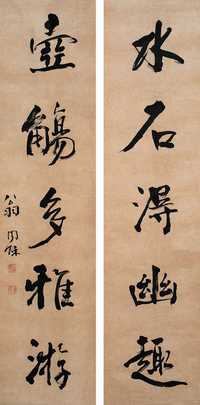 水石得幽趣
壶觴多雅游
翁同龢